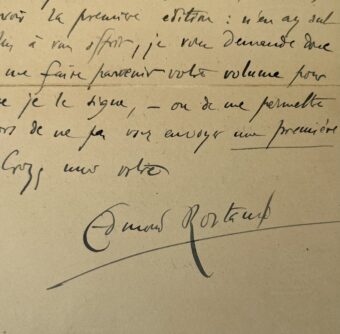 voir la première edition : n'en ay ant
à vous offrir, je vous demande donc
me faire parvenir votre volume pour
je le signe, — ou de me permettre
de ne pas vous envoyer une première
Croyez moi votre
Edmond Rostand